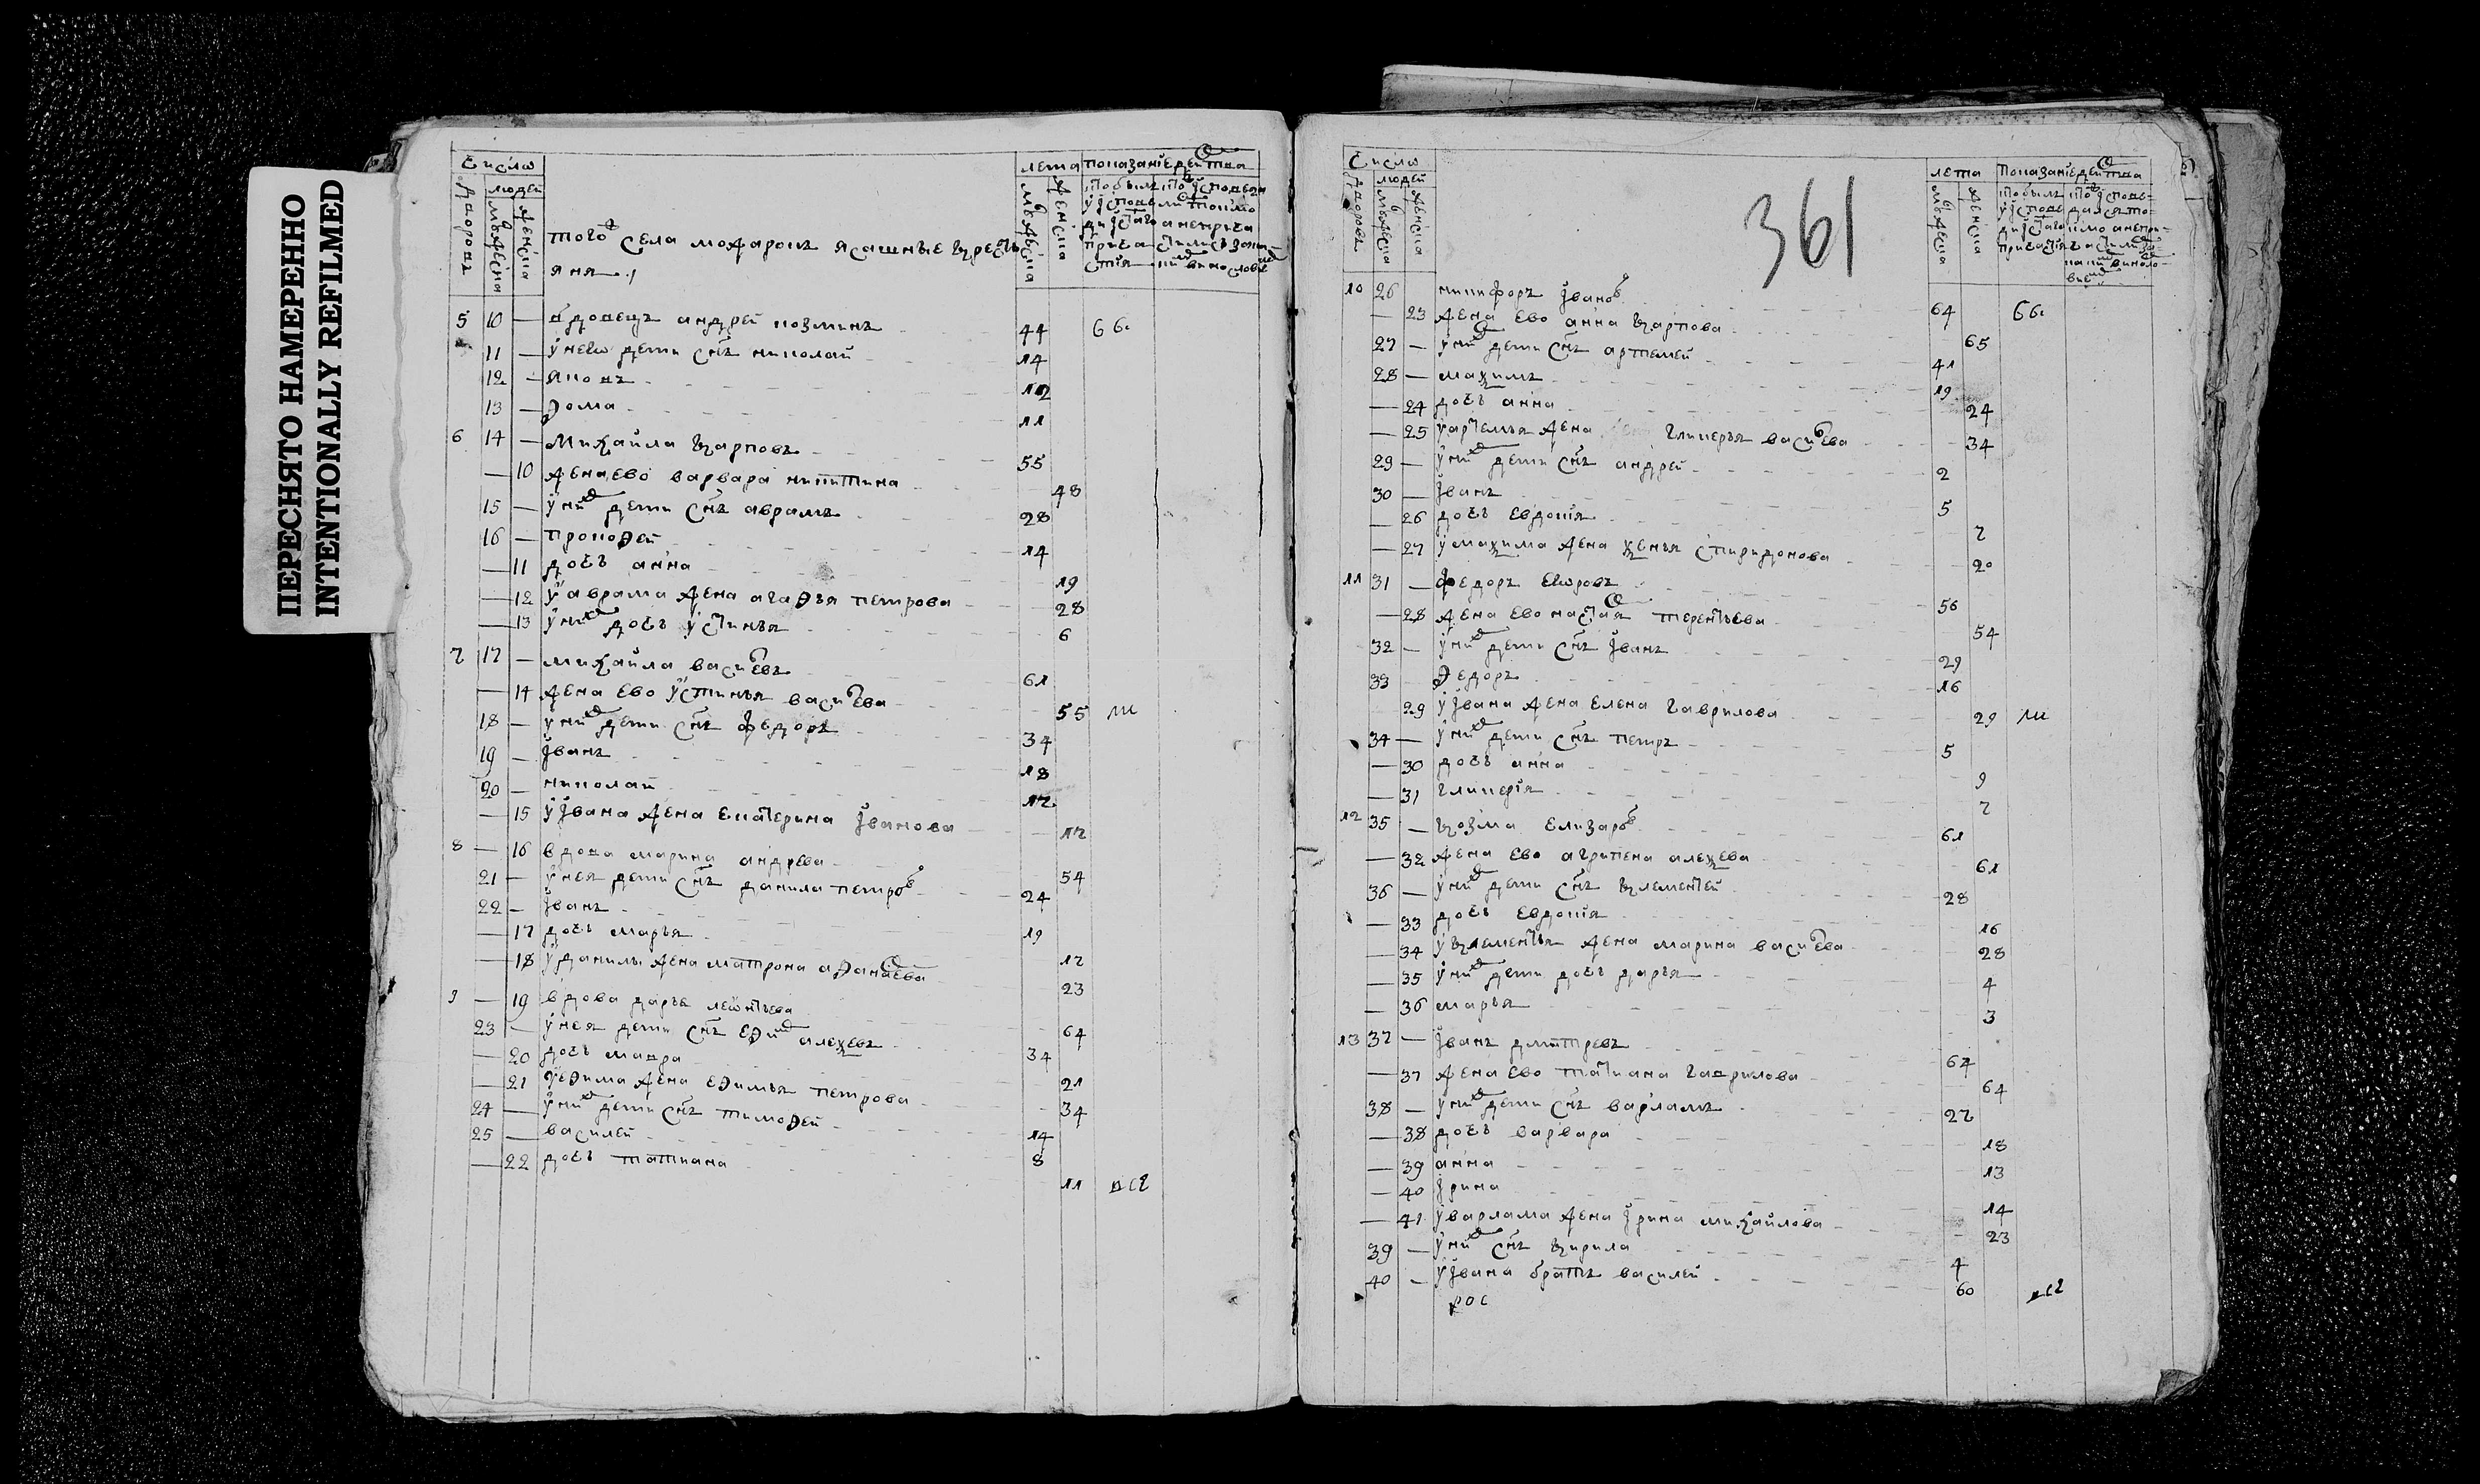 ПЕРЕСНЯТО НАМЕРЕННО
INTENTIONALLY REFILMED
Число
людей
дворовъ
мужеска
женска
лета
показание действа
мужеска
женска
того села можаровъ ясашные крестьяня
5 10 — вдовецъ андрей козминъ 44 бы
11 — у него дети снъ николай 14
12 — яковъ 12
13 — фома 11
6 14 — михайла карповъ 55
— 10 жена ево варвара никитина 48
15 — у них дети снъ аврамъ 28
16 — прокофей 14
— 11 дочь анна 19
— 12 у аврама жена агафья петрова 28
— 13 у них дочь устинья 6
7 17 — михайла василевъ 61
— 14 жена ево устинья василева 55 ли
18 — у них дети снъ федоръ 34
19 — Iванъ 18
20 — николай 17
— 15 у Iвана жена екатерина Iванова 17
8 — 16 вдова марина андрева 54
21 — у нея дети снъ данила петров 24
22 — Iванъ 19
— 17 дочь марья 17
— 18 у данилы жена матрона афанасева 23
9 — 19 вдова дарья леонтьева 64
23 — у нея дети снъ ефим алеѯевъ 34
— 20 дочь мавра 21
— 21 у ефима жена ефимья петрова 34
24 — у них дети снъ тимофей 14
25 — василей 8
— 22 дочь татиана 11 все
361
Число
людей
дворовъ
мужеска
женска
лета
показание действа
мужеска
женска
10 26 никифоръ Iванов 64 бы
— 23 жена ево анна карпова 65
27 — у них дети снъ артемей 41
28 — маѯимъ 19
— 24 дочь анна 24
— 25 у артемья жена гликерья василева 34
29 — у них дети снъ андрей 2
30 — Iванъ 5
— 26 дочь евдокiя 7
— 27 у маѯима жена ѯенья спиридонова 20
11 31 — федоръ егоровъ 56
— 28 жена ево настасья терентьева 54
32 — у них дети снъ Iванъ 29
33 федоръ 16
29 у Iвана жена елена гаврилова 29 ли
34 — у них дети снъ петръ 5
— 30 дочь анна 9
— 31 гликерiя 7
12 35 — козма елизаров 61
— 32 жена ево агрипена алеѯева 61
36 — у них дети снъ клементей 28
— 33 дочь евдокiя 16
— 34 у клементья жена марина василева 28
— 35 у них дети дочь дарья 4
— 36 марья 3
13 37 — Iванъ дмитревъ 67
— 37 жена ево татиана гаврилова 64
38 — у них дети снъ варламъ 27
— 38 дочь варвара 18
— 39 анна 13
— 40 Iрина 14
— 41 у варлама жена Iрина михайлова 23
39 — у них снъ кирила 4
40 — у Iвана братъ василей 60 все
рос